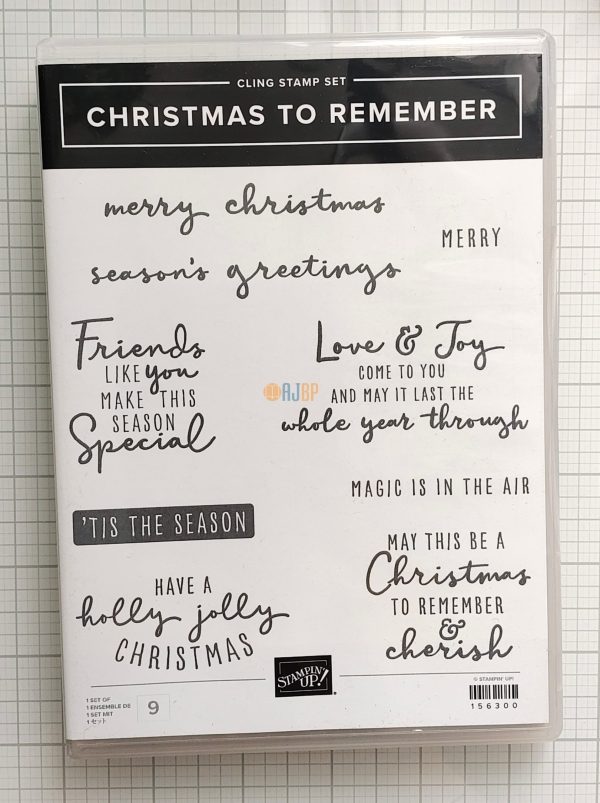 CLING STAMP SET
CHRISTMAS TO REMEMBER
merry christmas
MERRY
season's greetings
Friends
LIKE you
MAKE THIS
SEASON
Special
Love & Joy
COME TO YOU
AND MAY IT LAST THE
whole year through
AJBP
MAGIC IS IN THE AIR
'TIS THE SEASON
MAY THIS BE A
Christmas
TO REMEMBER
&
cherish
HAVE A
holly jolly
CHRISTMAS
STAMPIN' UP!
© STAMPIN' UP!
156300
1 SET OF
1 ENSEMBLE DE
1 SET MIT
1 セット
9